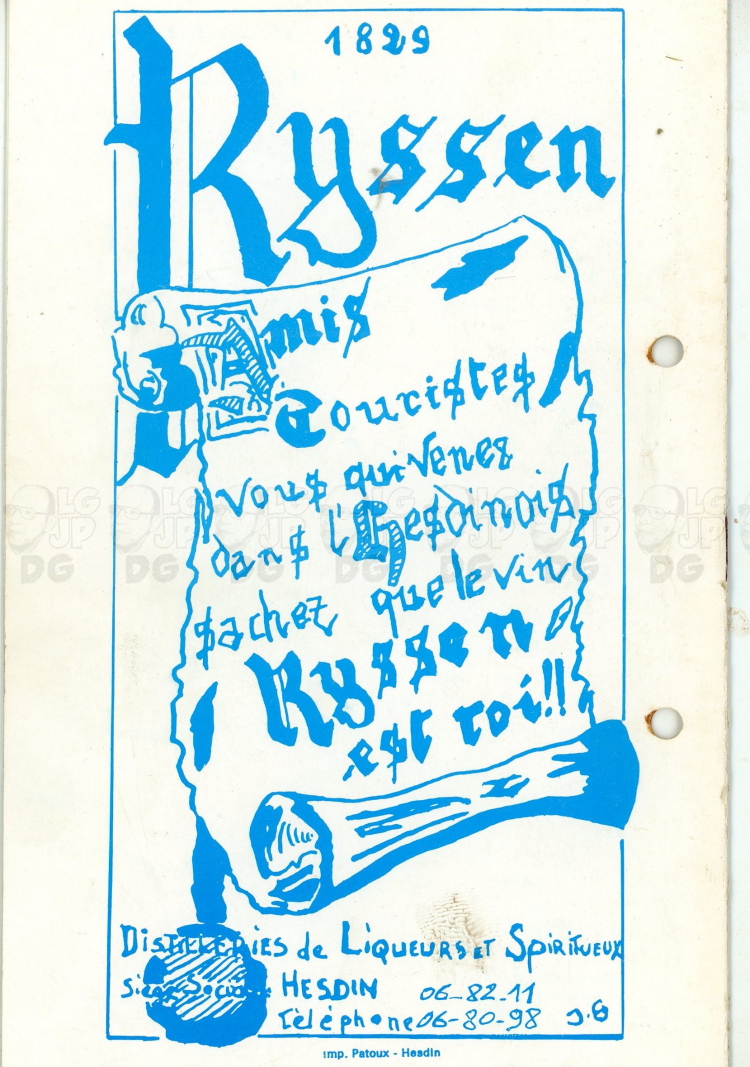 1829
Ryssen
Amis
Touristes
vous qui venez
dans l'Hesdinois
sachez que le vin
Ryssen
est roi!!
Distilleries de Liqueurs et Spiritueux
Siège Social HESDIN 06-82-11
Téléphone 06-80-98 J.G
Imp. Patoux - Hesdin
LG JP DG LG JP DG LG JP DG LG JP DG LG JP DG LG JP DG LG JP DG